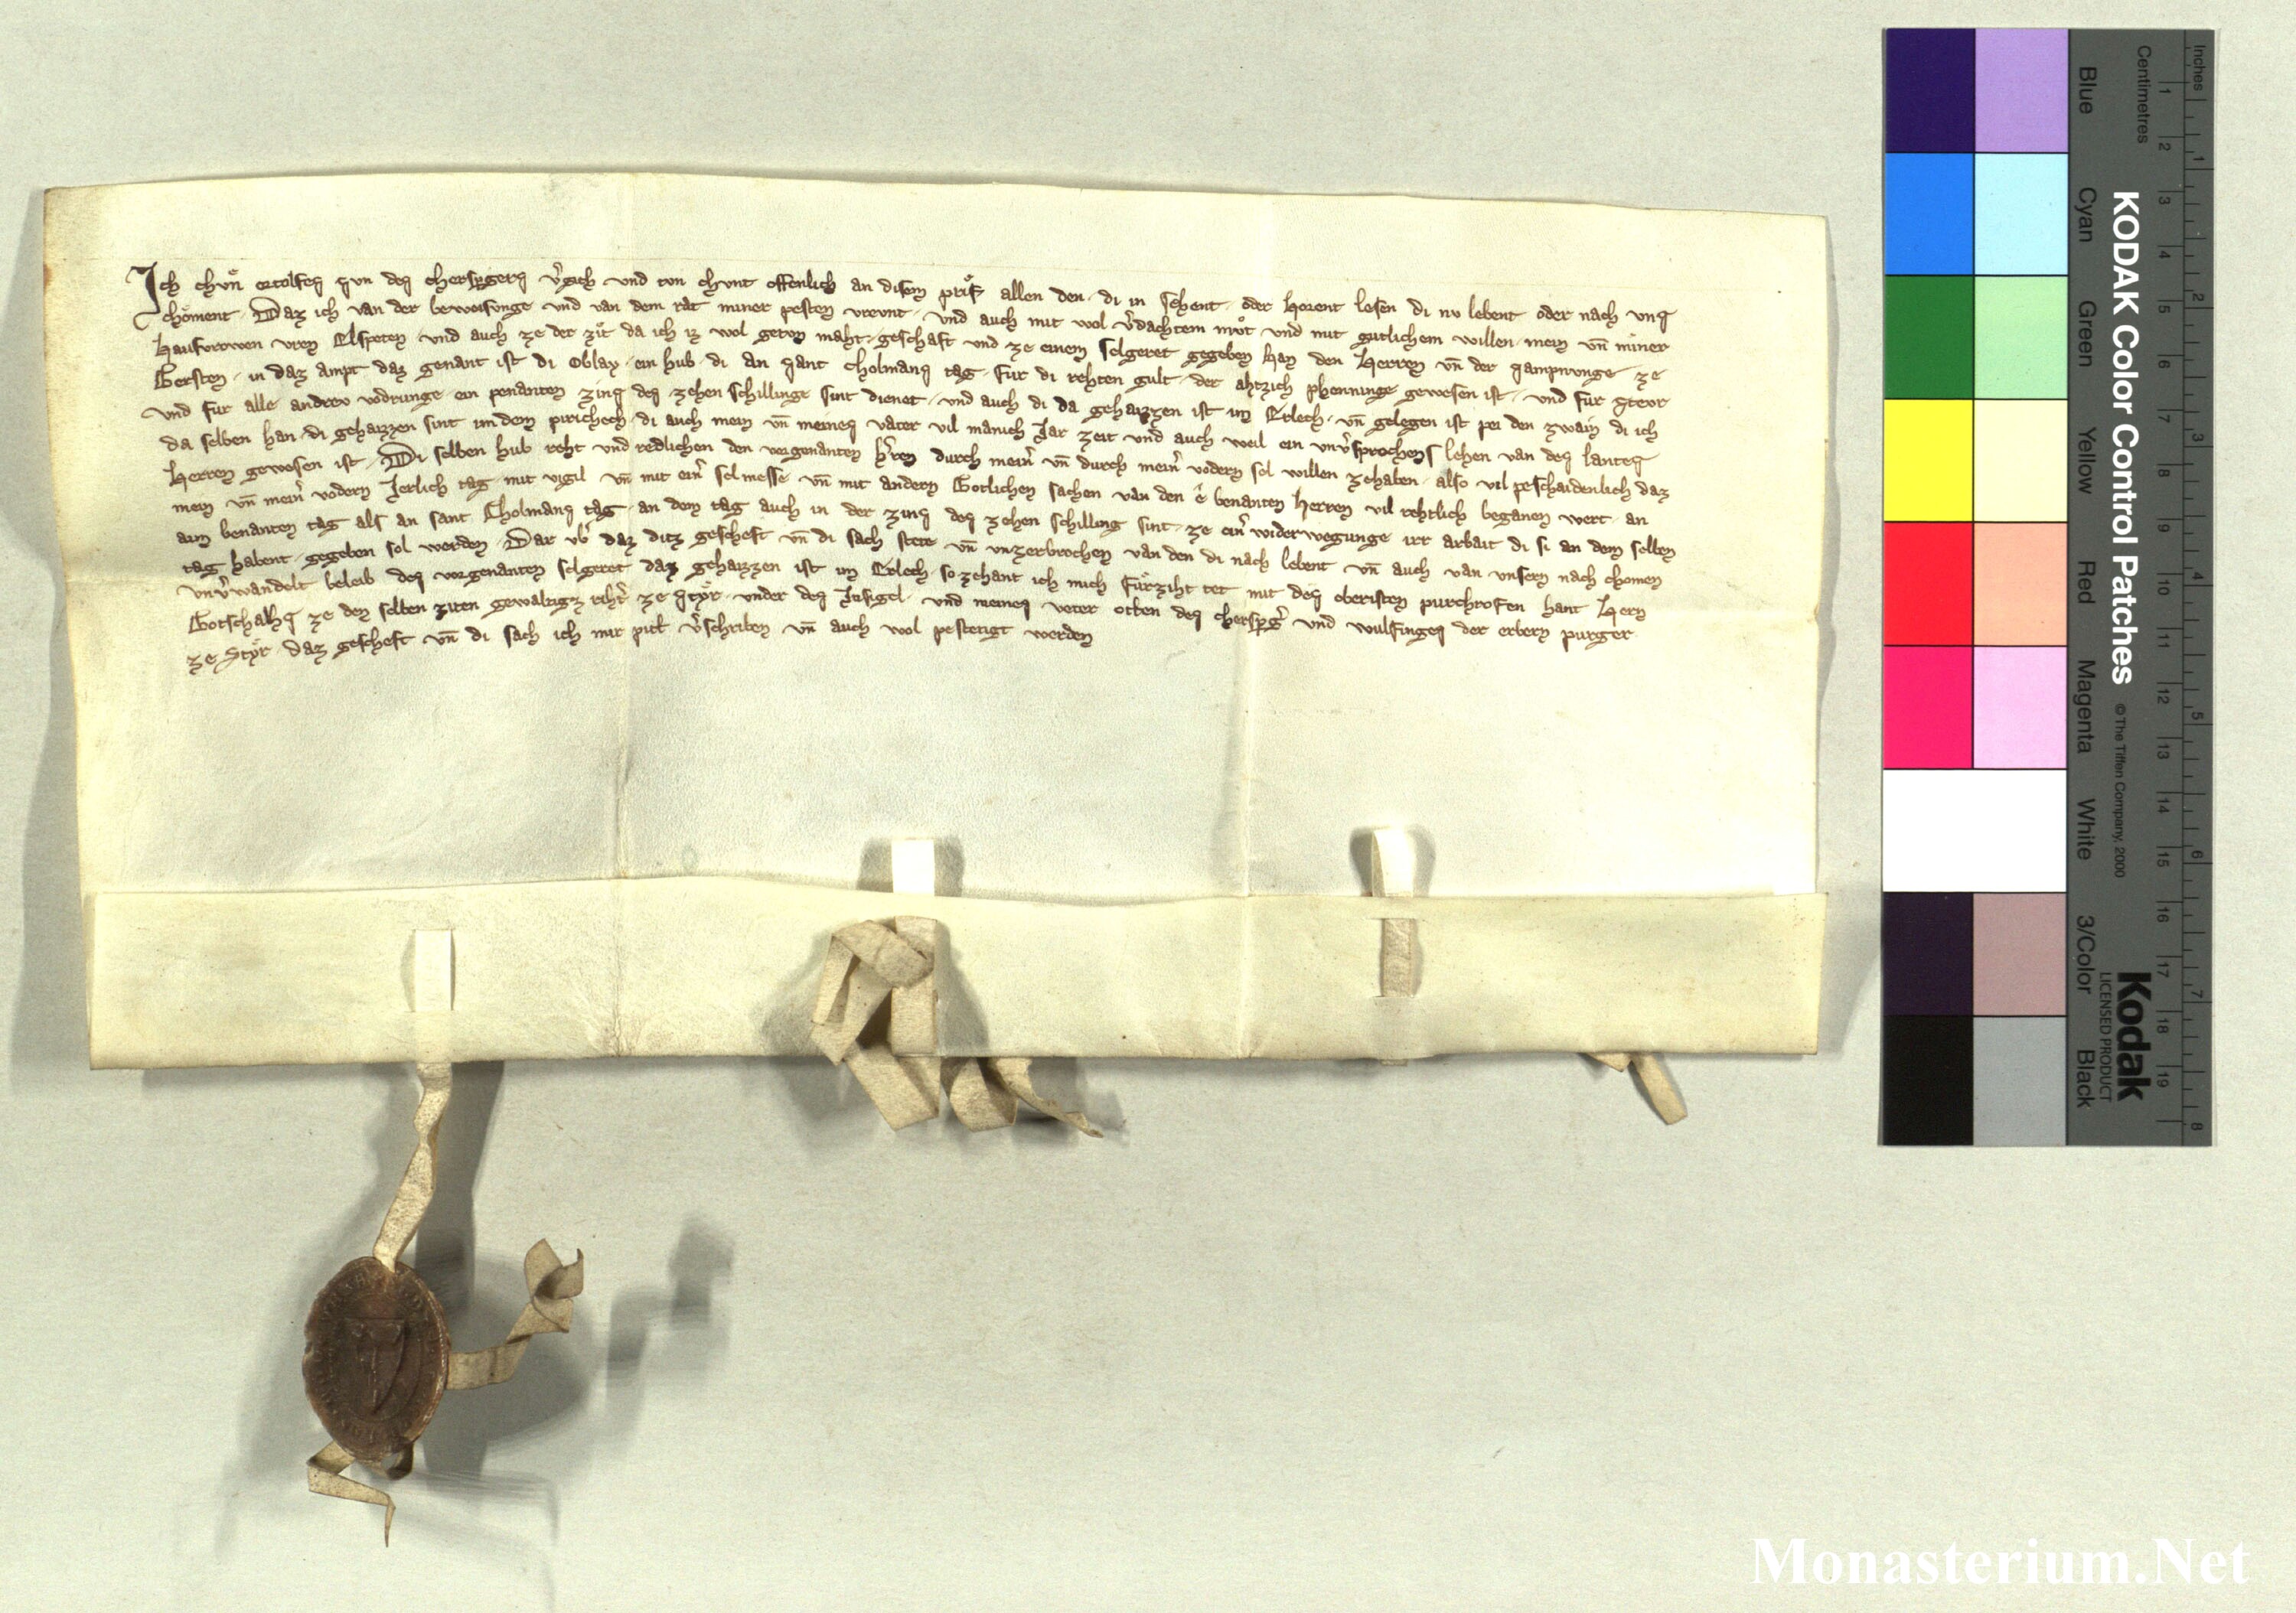 Ich chvnͤ ortolfes svn des chersp̱gers v̓gich vnd tvn chvnt offenlich an disem priͤf allen den · di in sehent · oder horent lesen di nv lebent oder nach vns
choment · Daz ich van der beweisunge vnd van dem rat miner pesten vrevnt · vnd auch mit wol v̓dachtem mvͦt vnd mit gutlichem willen · mein vn̄ miner
hausvrowen vren Elspeten · vnd auch ze der zit da ich iz wol getvn maht · geschaft vnd ze einem selgeret gegeben han den Herren vn̄ der sampnunge ze
Gersten · in daz ampt daz genant ist di Oblay · ein hub · di an sant Cholmans tag · fur di rehten gult · der ahtzich phenninge gewesen ist · vnd fur stevr
vnd fur alle andrev vodrunge · ein penanten zins des zehen schillinge sint dienet · vnd auch di da gehaizzen ist im Erlech · vn̄ gelegen ist pei den zwain di ich
da selben han · di gehaizzen sint in dem pirichech · di auch mein vn̄ meines vater vil manich Jar zeit vnd auch weil ein vnv̓sprochens lehen van des lantes
Herren gewesen ist · Di selben hub reht vnd redlichen den vorgenanten h̓ren durch mein̓ vn̄ durch mein̓ vodern sel willen zehaben · also vil peschaidenlich daz
mein vn̄ mein̓ vodern Jerlich tag · mit vigil vn̄ mit ein̓ selmesse vn̄ mit andern Gotlichen sachen van den ê benanten Herren vil rehtlich begangen wert · an
aim benanten tag als an sant Cholmans tag · an dem tag auch in der zins des zehen schilling sint · ze ein̓ widerwegunge irr arbait di si an dem selben
tag habent · gegeben sol werden · Dar vb̓ daz ditz gescheft vn̄ di sach stete vn̄ vnzerbrochen van den di nach lebent vn̄ auch van vnsern nach chomen
vnv̓wandelt beleib des vorgenanten selgeret daz gehaizzen ist im Erlech · so zehant ich mich furziht tet mit des oberisten purchrofen hant Hern
Gotschalhs ze den selben ziten gewaltigz ze Styͤr · vnder des Insigel · vnd meines veter otten des chersp̱g̓ vnd wulfinges der erbern purger
ze Styͤr · daz gescheft vn̄ di sach ich mir pitt v̓schriben vn̄ auch wol pestetigt werden
KODAK Color Control Patches
© The Tiffen Company, 2000
Kodak
LICENSED PRODUCT
Inches
Centimetres
1 2 3 4 5 6 7 8
1 2 3 4 5 6 7 8 9 10 11 12 13 14 15 16 17 18 19
Blue
Cyan
Green
Yellow
Red
Magenta
White
3/Color
Black
Monasterium.Net